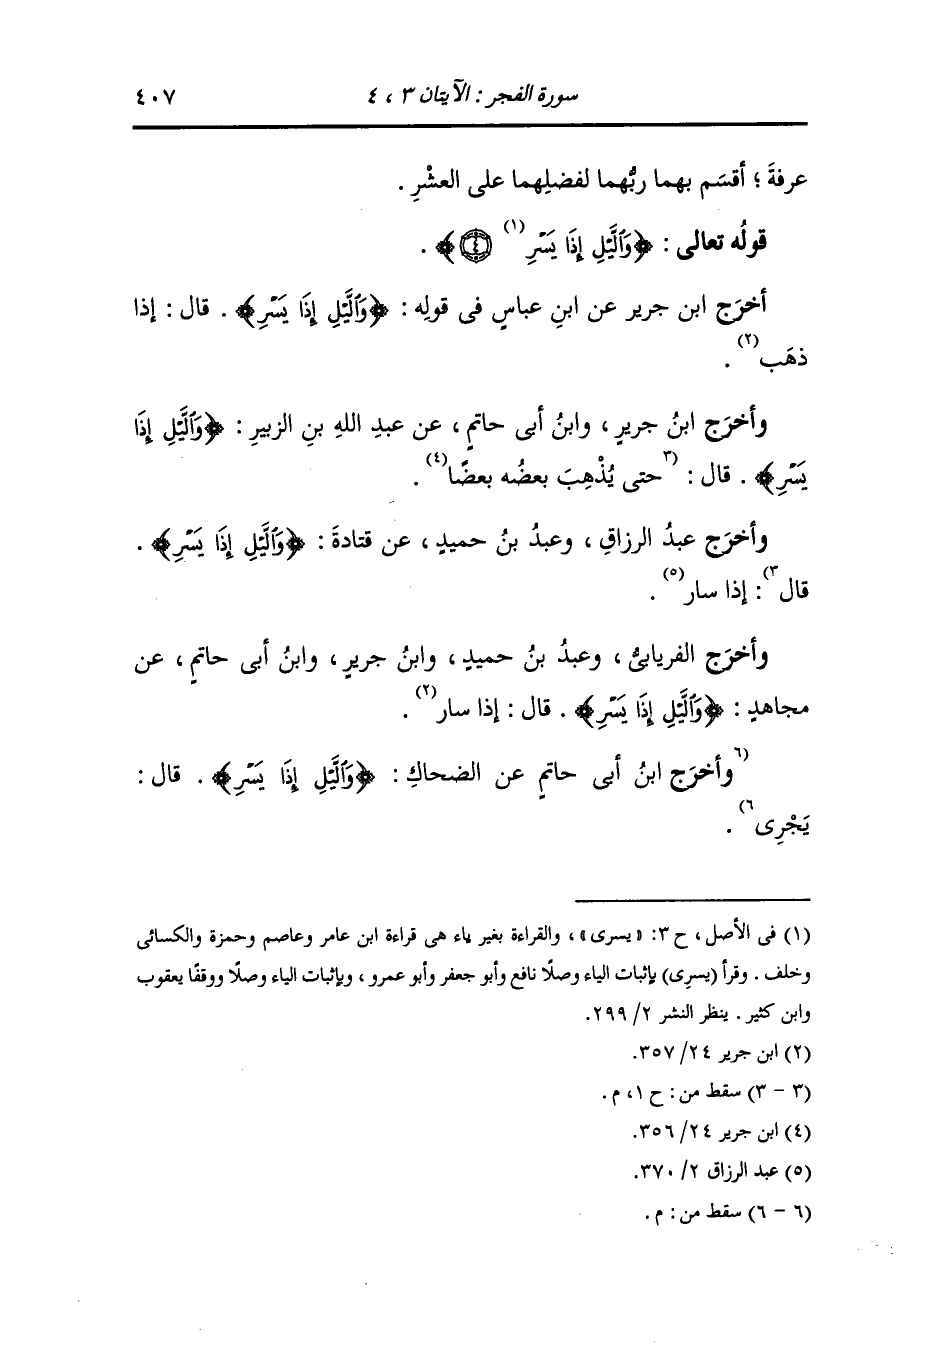 سورة الفجر : الآيتان ٣ ، ٤ ٤٠٧
عرفةَ ؛ أقسَم بهما ربُّهما لفضلِهما على العشْرِ .
قولُه تعالى : ﴿وَٱلَّيْلِ إِذَا يَسْرِ(١) ٤﴾ .
أخرَج ابن جرير عن ابنِ عباسٍ فى قولِه : ﴿وَٱلَّيْلِ إِذَا يَسْرِ﴾ . قال : إذا
ذهَب(٢) .
وأخرَج ابنُ جريرٍ ، وابنُ أبى حاتمٍ ، عن عبدِ اللهِ بنِ الزبيرِ : ﴿وَٱلَّيْلِ إِذَا
يَسْرِ﴾ . قال : (٣حتى يُذْهِبَ بعضُه بعضًا(٤) .
وأخرَج عبدُ الرزاقِ ، وعبدُ بنُ حميدٍ ، عن قتادةَ : ﴿وَٱلَّيْلِ إِذَا يَسْرِ﴾ .
قال٣) : إذا سار(٥) .
وأخرَج الفريابىُّ ، وعبدُ بنُ حميدٍ ، وابنُ جريرٍ ، وابنُ أبى حاتمٍ ، عن
مجاهدٍ : ﴿وَٱلَّيْلِ إِذَا يَسْرِ﴾ . قال : إذا سار(٢) .
(٦وأخرَج ابنُ أبى حاتمٍ عن الضحاكِ : ﴿وَٱلَّيْلِ إِذَا يَسْرِ﴾ . قال :
يَجْرِى٦) .
(١) فى الأصل ، ح ٣: «يسرى» ، والقراءة بغير ياء هى قراءة ابن عامر وعاصم وحمزة والكسائى
وخلف . وقرأ (يسرِى) بإثبات الياء وصلًا نافع وأبو جعفر وأبو عمرو ، وبإثبات الياء وصلًا ووقفًا يعقوب
وابن كثير . ينظر النشر ٢/ ٢٩٩.
(٢) ابن جرير ٢٤/ ٣٥٧.
(٣ - ٣) سقط من : ح ١، م .
(٤) ابن جرير ٢٤/ ٣٥٦.
(٥) عبد الرزاق ٢/ ٣٧٠.
(٦ - ٦) سقط من : م .